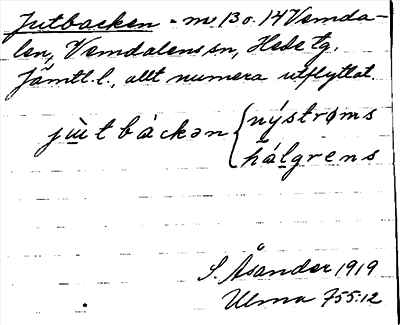 Jutbacken - m. 13 o. 14 Vemda-
len, Vemdalens sn, Hede tg.
Jämtl. l., allt numera utflyttat
jùtbáckən { nýstrøms
hálgrens
S. Åsander 1919
Ulma 755:12